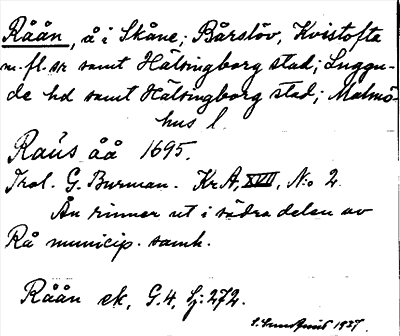 Råån, å i Skåne; Bårslöv, Kvistofta
m. fl. sr samt Hälsingborg stad; Luggu-
de hd samt Hälsingborg stad; Malmö-
hus l.
Raús åå 1695.
Trol. G. Burman. KrA, XVII, N:o 2.
Ån rinner ut i södra delen av
Rå municip. samh.
Råån ek, G.4, Lj: 272.
1937.